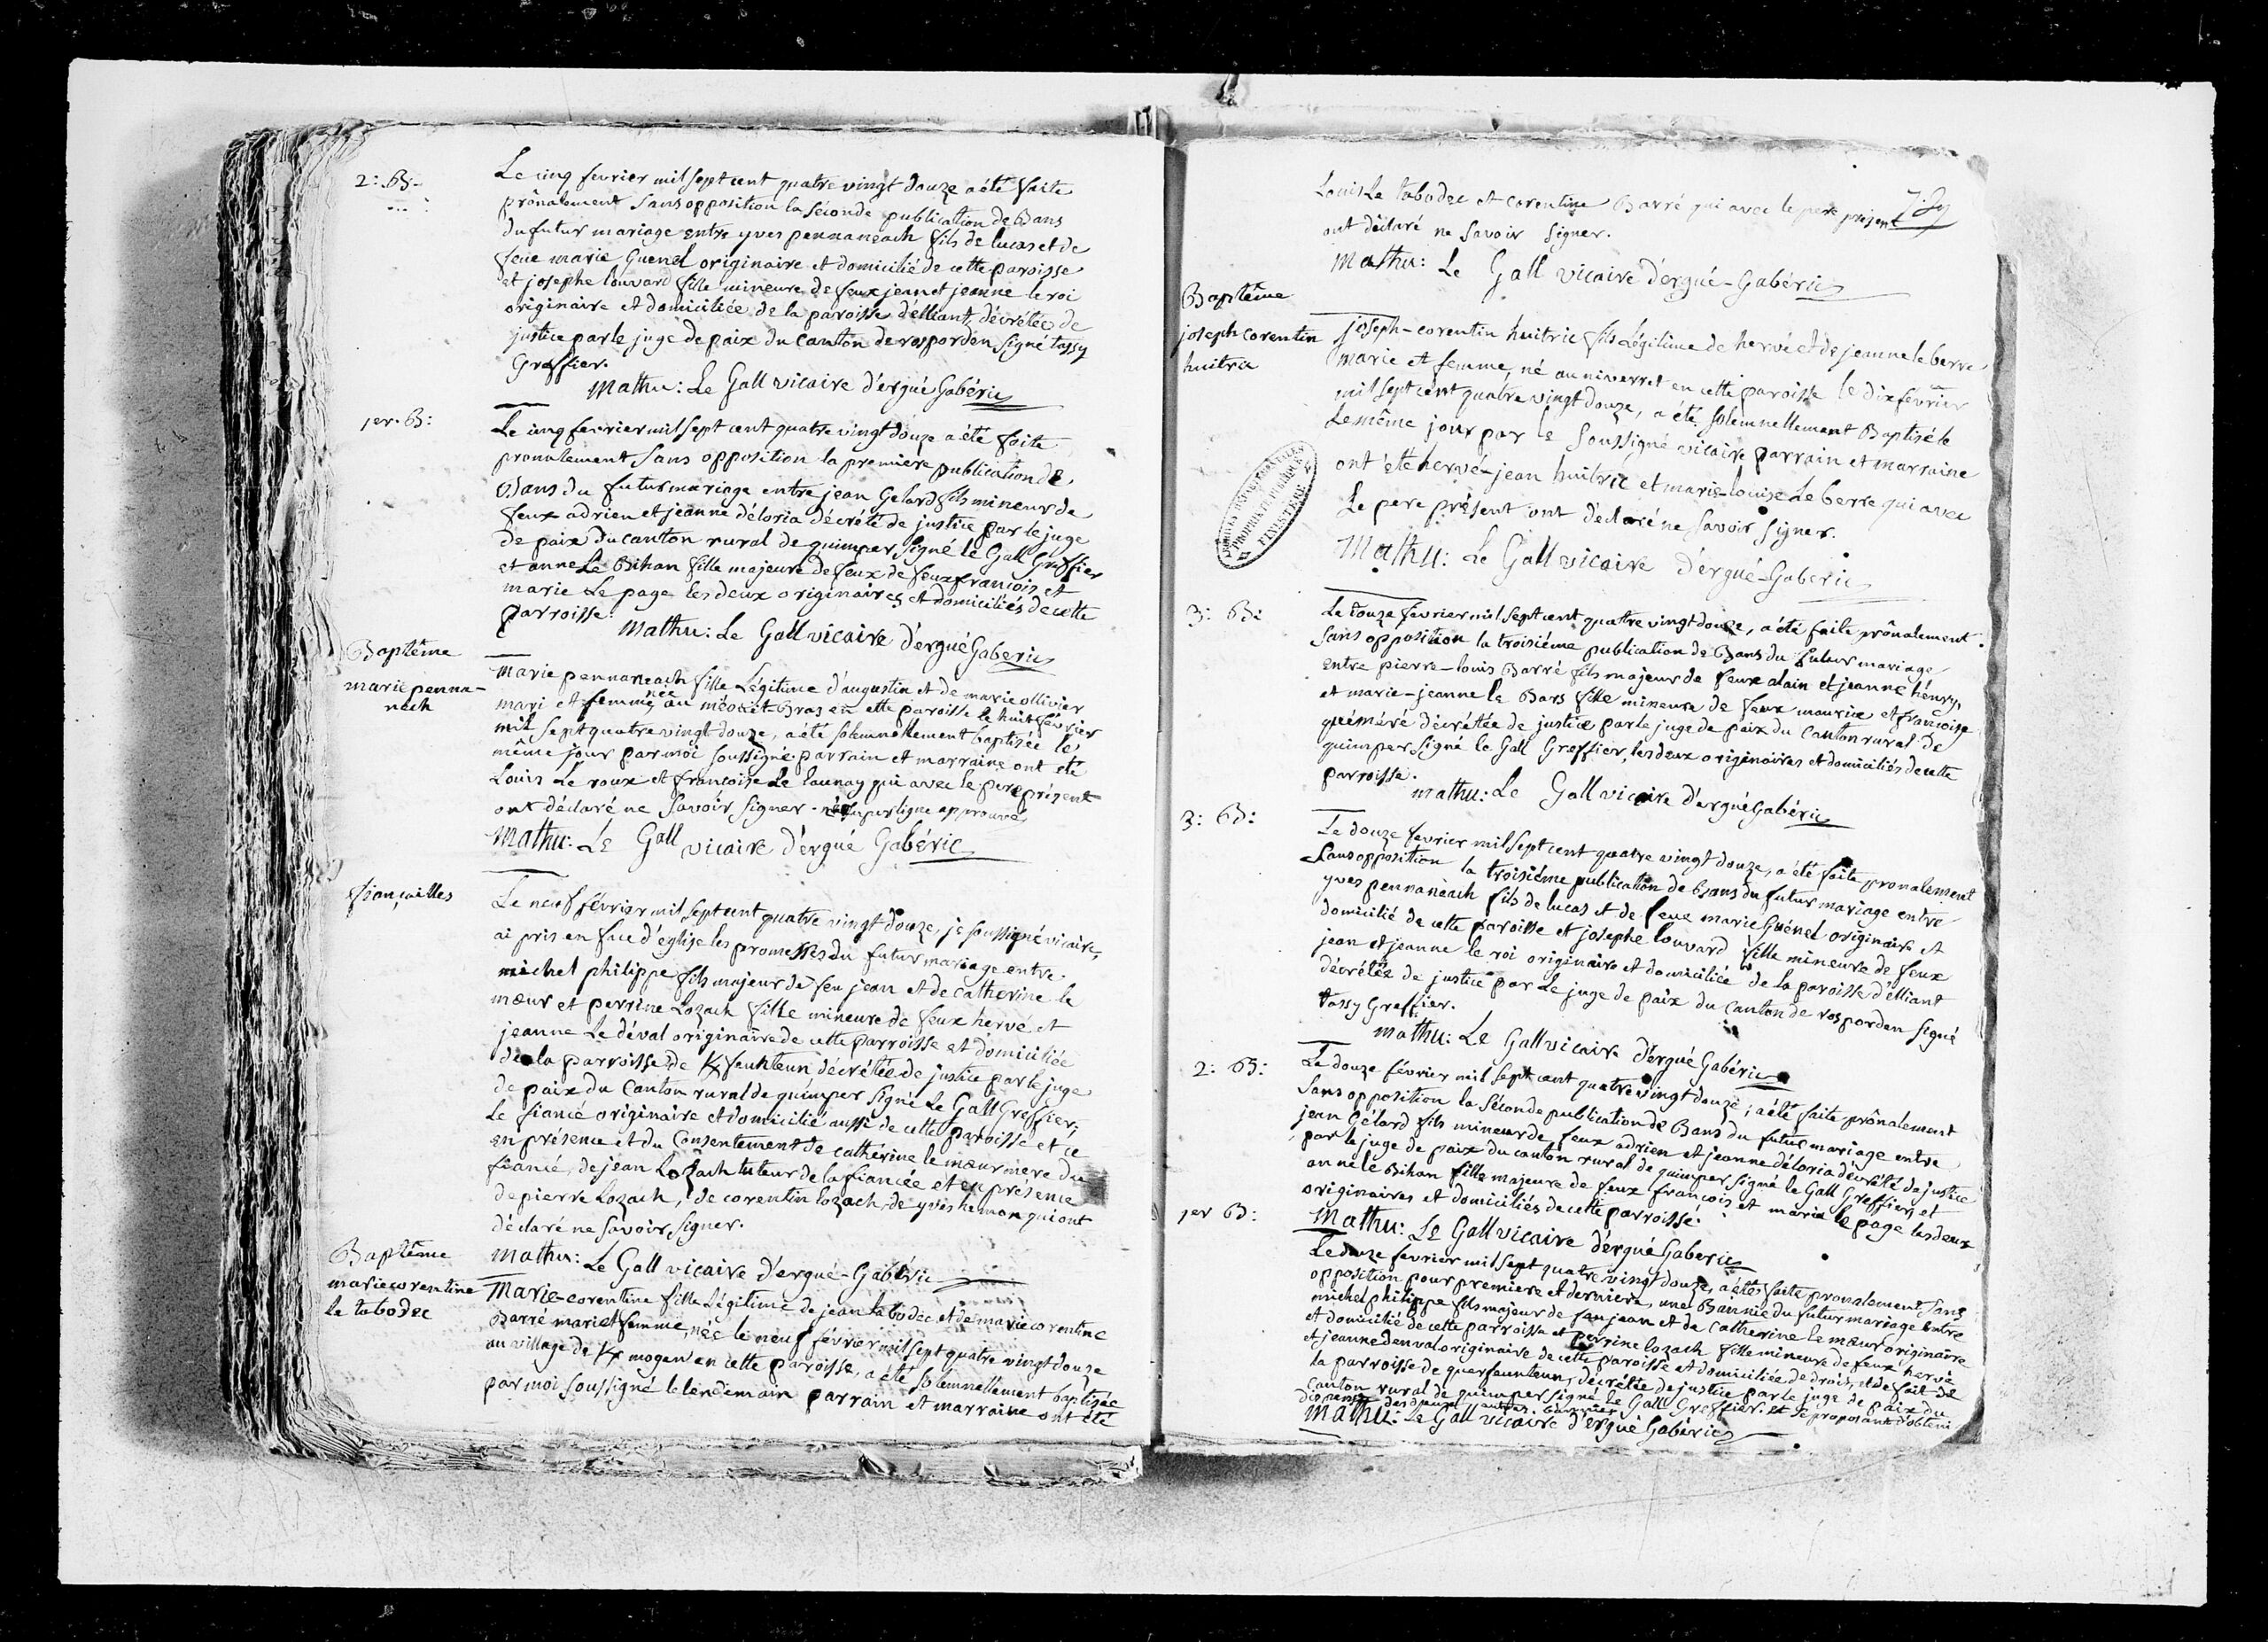 2: B.
Le cinq fevrier mil sept cent quatre vingt douze a été faite
prônalement sans opposition la séconde publication de Bans
du futur mariage entre yves pennaneach fils de lucas et de
feue marie Guenel originaire et domicilié de cette paroisse
et josephe louvard fille mineure de feux jean et jeanne le roi
originaire et domiciliée de la paroisse d'élliant, décrétée de
justice par le juge de paix du canton de rosporden signé tassy
Greffier.
Mathu: Le Gall vicaire d'ergué Gabéric
1er. B:
Le cinq fevrier mil sept cent quatre vingt douze a été faite
pronalement sans opposition la première publication de
Bans du futur mariage entre jean Gelard fils mineur de
feux adrien et jeanne déloria décrété de justice par le juge
de paix du canton rural de quimper signé le Gall Greffier
et anne Le Bihan fille majeure de feux de feux francois et
marie Le page les deux originaires et domiciliés de cette
parroisse.
Mathu: Le Gall vicaire d'ergué Gaberic
Baptême
marie penna-
neach
Marie pennaneach fille Légitime d'augustin et de marie ollivier
mari et femme née au méouet-Bras en cette paroisse le huit février
mil sept quatre vingt douze, a été solemnellement baptisée le
même jour par moi soussigné parrain et marraine ont été
Louis Le roux et francoise Le launay qui avec le pere présent
ont déclaré ne savoir signer. née superligne approuvé
Mathu: Le Gall vicaire d'ergué Gabéric
fiançailles
Le neuf février mil sept cent quatre vingt douze, je soussigné vicaire,
ai pris en face d'eglise les promesses du futur mariage entre
michel philippe fils majeur de feu jean et de catherine le
mœur et perrine Lozach fille mineure de feux hervé et
jeanne Le déval originaire de cette parroisse et domiciliée
de la parroisse de Kfeunteun décrétée de justice par le juge
de paix du Canton rural de quimper signé Le Gall Greffier;
Le fiancé originaire et domicilié aussi de cette paroisse et ce
en présence et du Consentement de cathérine le mœur mere du
fiancé, de jean Lozach tuteur de la fiancée et en présence
de pierre Lozach, de corentin lozach, de yves hemon qui ont
déclaré ne savoir signer.
Mathu: Le Gall vicaire d'ergué-Gabéric
Baptême
marie corentine
Le tabodec
Marie-corentine fille Légitime de jean tabodec et de marie corentine
Barré mari et femme, née le neuf février mil sept quatre vingt douze
au village de Kmogen en cette paroisse, a été solemnellement baptisée
par moi soussigné le lendemain parrain et marraine ont été
Louis Le tabodec et corentine Barré qui avec le pere présent
ont déclaré ne savoir signer.
Mathu: Le Gall vicaire d'ergué-Gabéric
Baptême
joseph corentin
huitric
joseph-corentin huitric fils Légitime de hervé et de jeanne le berre
marie et femme, né au niverret en cette paroisse le dix février
mil sept cent quatre vingt douze, a été solemnellement Baptisé le
Le même jour par le soussigné vicaire parrain et marraine
ont été hervé-jean huitric et marie-louise Le berre qui avec
Le pere présent ont déclaré ne savoir signer.
Mathu: Le Gall vicaire d'ergué-Gaberic
ARCHIVES DEPARTEMENTALES
PROPRIETE PUBLIQUE
FINISTERE
3: B:
Le douze février mil sept cent quatre vingt douze, a été faite prônalement
sans opposition la troisiéme publication de Bans du futur mariage
entre pierre-louis Barré fils majeur de feux alain et jeanne hénry,
et marie-jeanne le Bars fille mineure de feux maurice et francoise
quéméré décrétée de justice par le juge de paix du Canton rural de
quimper signé le Gall Greffier, les deux originaires et domiciliés de cette
parroisse.
mathu: Le Gall vicaire d'ergué Gabéric
3: B:
Le douze fevrier mil sept cent quatre vingt douze, a été faite pronalement
sans opposition la troisiéme publication de Bans du futur mariage entre
yves pennaneach fils de lucas et de feue marie Guénel originaire et
domicilié de cette paroisse et josephe louvard fille mineure de feux
jean et jeanne le roi originaire et domiciliée de la paroisse d'élliant
décrétée de justice par Le juge de paix du canton de rosporden signé
tassy Greffier.
Mathu: Le Gall vicaire d'ergué Gabéric
2: B:
Le douze février mil sept cent quatre vingt douze; a été faite prônalement
sans opposition la séconde publication de Bans du futur mariage entre
jean Gélard fils mineur de feux adrien et jeanne déloria décrété de justice
par le juge de paix du canton rural de quimper signé le Gall Greffier, et
anne le Bihan fille majeure de feux francois et marie le page les deux
originaires et domiciliés de cette parroisse.
Mathu: Le Gall vicaire d'ergué Gaberic
1er B:
Le douze fevrier mil sept quatre vingt douze, a été faite pronalement, sans
opposition pour premiere et derniere, une Bannie du futur mariage entre
michel philippe fils majeur de feu jean et de Catherine le mœur originaire
et domicilié de cette parroisse et perrine lozach fille mineure de feux hervé
et jeanne denval originaire de cette paroisse et domiciliée de droit, et de fait de
la parroisse de querfeunteun, décrétée de justice par le juge de paix du
canton rural de quimper signé le Gall Greffier. et se proposant d'obtenir
dispense des deux autres bannies
Mathu: Le Gall vicaire d'ergué Gabéric